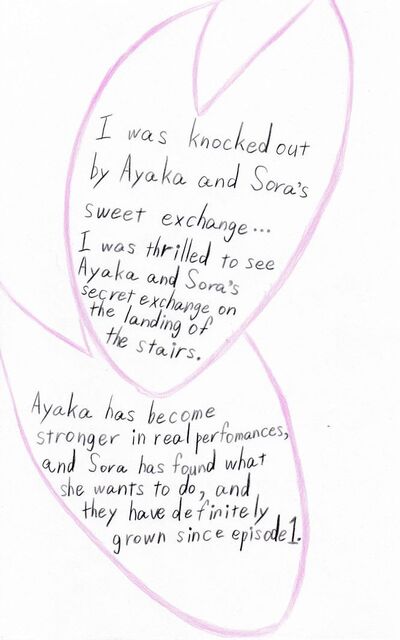 I was knocked out
by Ayaka and Sora's
sweet exchange...
I was thrilled to see
Ayaka and Sora's
secret exchange on
the landing of
the stairs.
Ayaka has become
stronger in real perfomances,
and Sora has found what
she wants to do, and
they have definitely
grown since episode 1.